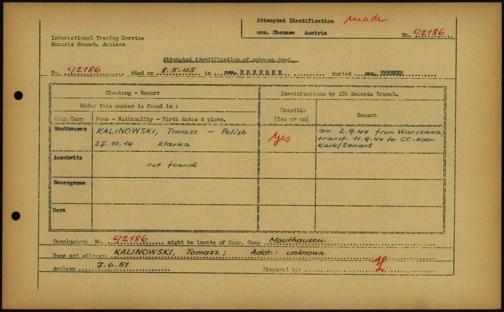 Attempted Identification made
cem. Ebensee Austria
No. 92186
International Tracing Service
Records Branch, Arolsen
Attempted identification of unknown dead.
No. 92186 died on 8.5.45 in cem. EBENSEE buried cem. EBENSEE
Checking - Report
Under this number is found in :
Conc. Camp Name - Nationality - Birth dates & place.
Identifications by ITS Records Branch.
Possible
(You or no)
Reason
Mauthausen KALINOWSKI, Tomasz - Polish
27.10.14 Klarka
Yes
arr. 2.9.44 from Warszawa,
transf. 11.9.44 to CC-Kdo.
Kalk/Zement
Auschwitz
not found
Neuengamme
Dora
Conclusion: No. 92186 might be inmate of Conc. Camp Mauthausen
Name and address: KALINOWSKI, Tomasz; Addr: unknown
Arolsen 7.6.51 Prepared by: